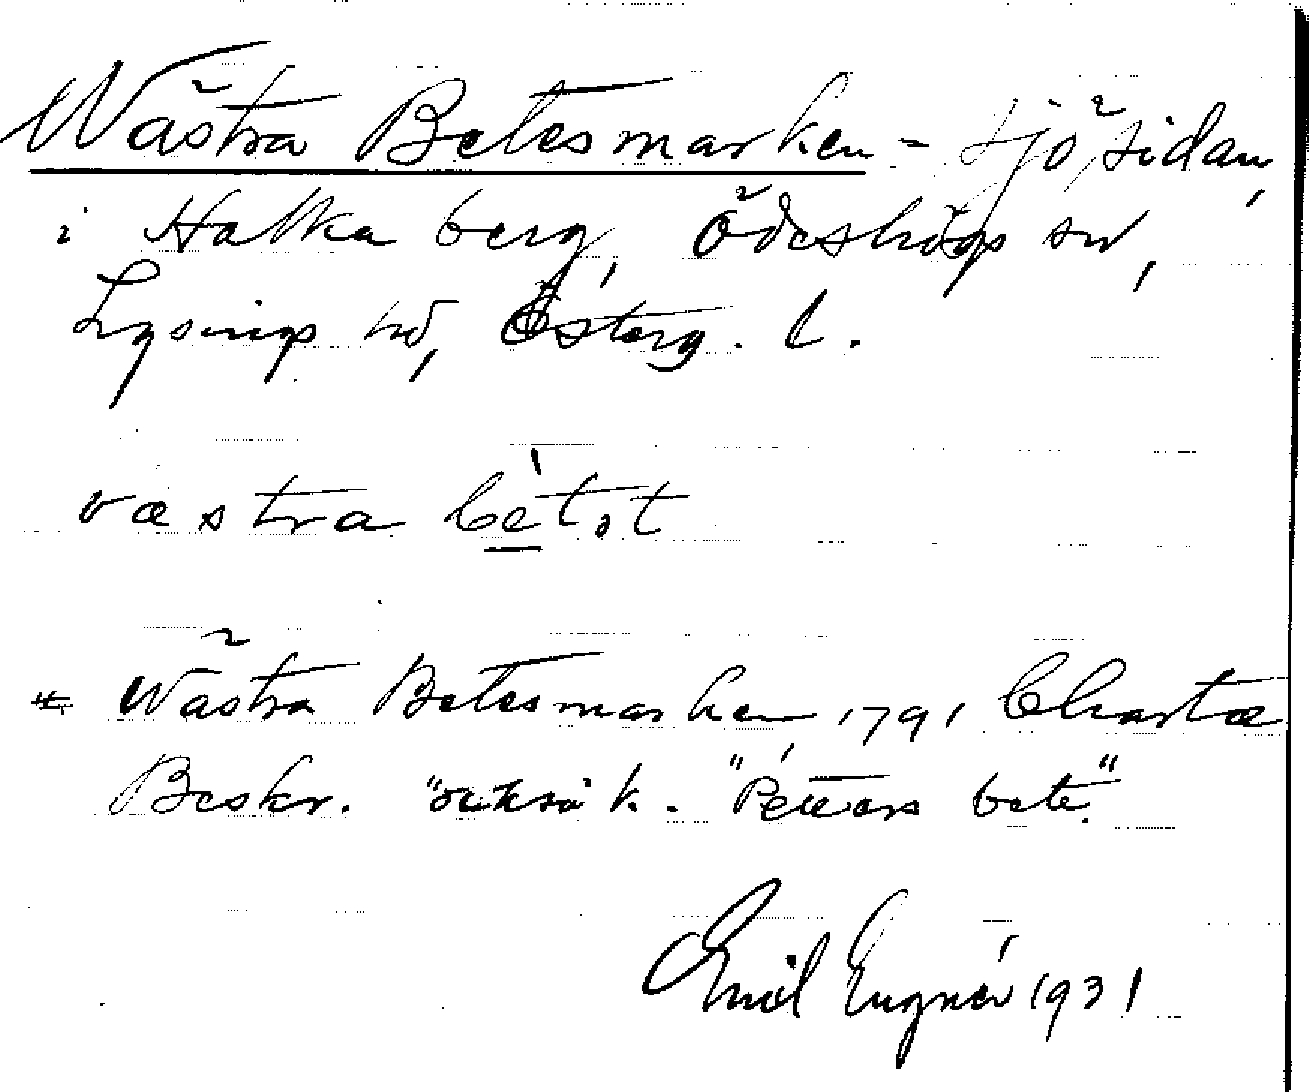 Wästra Betesmarken - sjösidan,
i Halkaberg, Ödeshögs sn,
Lysings hd, Österg. l.
västra bét.t
Wästra Betesmarken 1791 Charta
Beskr. "också k. "Petters bete."
Emil Eugnér 1931